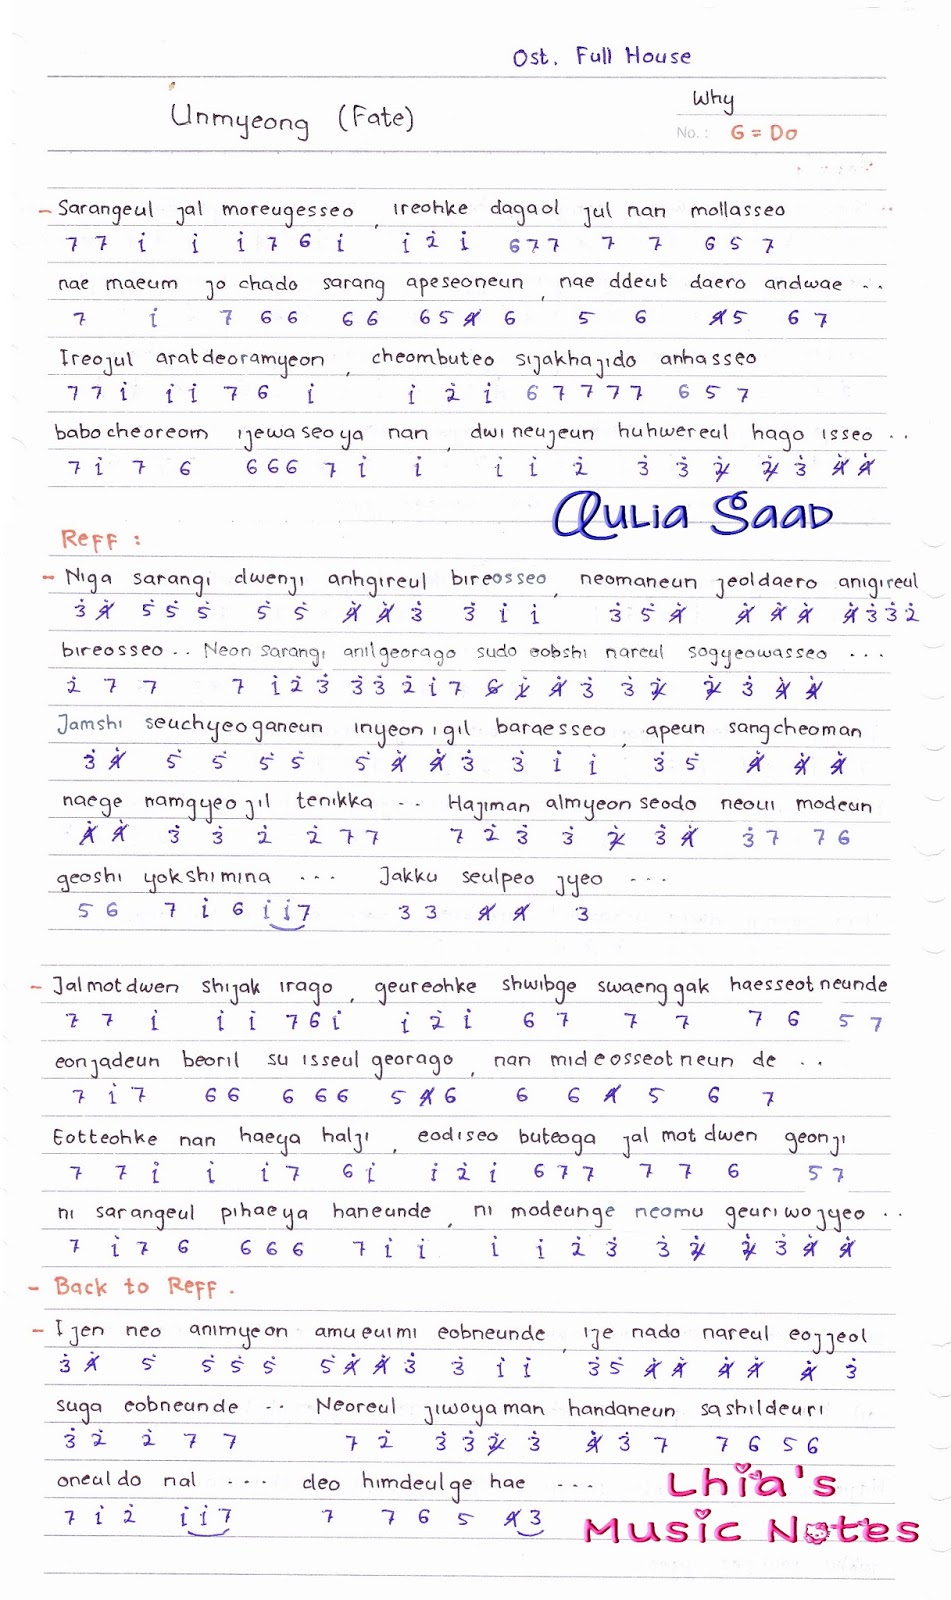 Ost. Full House
Unmyeong (Fate)
Why
No.: G = Do
- Sarangeul jal moreugesseo, ireohke dagaol jul nan mollasseo
7 7 i i i 7 6 i i 2̇ i 6 7 7 7 7 6 5 7
nae maeum jo chado sarang apeseoneun, nae ddeut daero andwae ..
7 i 7 6 6 6 6 6 5 4̸ 6 5 6 4̸ 5 6 7
Ireojul aratdeoramyeon, cheombuteo sijakhajido anhasseo
7 7 i i i 7 6 i i 2̇ i 6 7 7 7 7 6 5 7
babo cheoreom ijewaseoya nan, dwi neujeun huhwereul hago isseo ..
7 i 7 6 6 6 6 7 i i i i 2̇ 3̇ 3̇ 2̸̇ 2̸̇ 3̇ 4̸̇ 4̸̇
Aulia Saad
Reff :
- Niga sarangi dwenji anhgireul bireosseo, neomaneun jeoldaero anigireul
3̇ 4̸̇ 5̇ 5̇ 5̇ 5̇ 5̇ 4̸̇ 4̸̇ 3̇ 3̇ i i 3̇ 5̇ 4̸̇ 4̸̇ 4̸̇ 4̸̇ 4̸̇ 3̇ 3̇ 2̇
bireosseo .. Neon sarangi anilgeorago sudo eobshi nareul sogyeowasseo ...
2̇ 7 7 7 i 2̇ 3̇ 3̇ 3̇ 2̇ i 7 4̸̇ 3̇ 3̇ 2̸̇ 2̸̇ 3̇ 4̸̇ 4̸̇
Jamshi seuchyeoganeun inyeonigil baraesseo, apeun sangcheoman
3̇ 4̸̇ 5̇ 5̇ 5̇ 5̇ 5̇ 4̸̇ 4̸̇ 3̇ 3̇ i i 3̇ 5̇ 4̸̇ 4̸̇ 4̸̇
naege namgyeojil tenikka .. Hajiman almyeonseodo neoui modeun
4̸̇ 4̸̇ 3̇ 3̇ 2̇ 2̇ 7 7 7 2̇ 3̇ 3̇ 2̸̇ 3̇ 4̸̇ 3̇ 7 7 6
geoshi yokshimina ... Jakku seulpeo jyeo ...
5 6 7 i 6 i i 7 3 3 4̸ 4̸ 3
- Jalmotdwen shijak irago, geureohke shwibge swaenggak haesseotneunde
7 7 i i i 7 6 i i 2̇ i 6 7 7 7 7 6 5 7
eonjadeun beoril su isseul georago, nan mideosseotneun de ..
7 i 7 6 6 6 6 6 5 4̸ 6 6 6 4̸ 5 6 7
Eotteohke nan haeya halji, eodiseo buteoga jal mot dwen geonji
7 7 i i i 7 6 i i 2̇ i 6 7 7 7 7 6 5 7
ni sarangeul pihaeya haneunde, ni modeunge neomu geuriwojyeo ..
7 i 7 6 6 6 6 7 i i i i 2̇ 3̇ 3̇ 2̸̇ 2̸̇ 3̇ 4̸̇ 4̸̇
- Back to Reff.
- Ijen neo animyeon amueuimi eobneunde, ije nado nareul eojjeol
3̇ 4̸̇ 5̇ 5̇ 5̇ 5̇ 5̇ 4̸̇ 4̸̇ 3̇ 3̇ i i 3̇ 5̇ 4̸̇ 4̸̇ 4̸̇ 4̸̇ 4̸̇ 3̇
suga eobneunde .. Neoreul jiwoyaman handaneun sashildeuri
3̇ 2̇ 2̇ 7 7 7 2̇ 3̇ 3̇ 2̸̇ 3̇ 4̸̇ 3̇ 7 7 6 5 6
oneuldo nal ... deo himdeulge hae ...
7 i 2̇ i i 7 7 7 6 5 4̸ 3
Lhia's
Music Notes